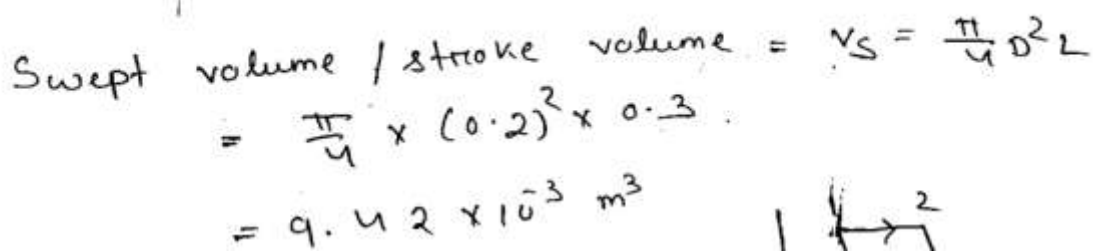 Swept volume / stroke volume = Vs = π/4 D²L
= π/4 × (0.2)² × 0.3.
= 9.42 × 10⁻³ m³
2